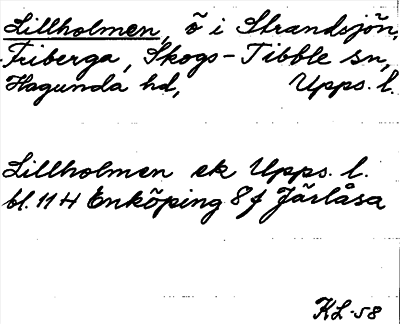 Lillholmen, ö i Strandsjön,
Friberga, Skogs-Tibble sn,
Hagunda hd, Upps. l.
Lillholmen ek Upps. l.
bl. 11 H Enköping 8f Järlåsa
KL-58